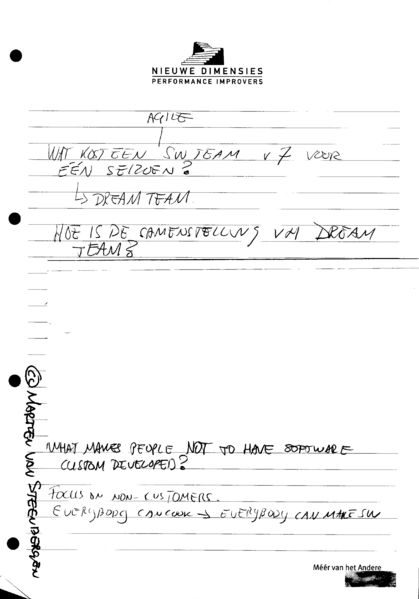 NIEUWE DIMENSIES
PERFORMANCE IMPROVERS
AGILE
WAT KOST EEN SW TEAM v 7 VOOR
ÉÉN SEIZOEN?
↳ DREAM TEAM
HOE IS DE SAMENSTELLING VH DREAM
TEAM?
WHAT MAKES PEOPLE NOT TO HAVE SOFTWARE
CUSTOM DEVELOPED?
FOCUS ON NON-CUSTOMERS.
EVERYBODY CAN COOK → EVERYBODY CAN MAKE SW
(cc) MARTIEN VAN STEENBERGEN
Méér van het Andere